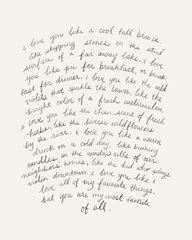 i love you like a cool fall breeze
like skipping stones on the still
surface of a far away lake. i love
you like pie for breakfast, or break
fast for dinner. i love you like the wild
violets that sparkle the lawn. like the
bright color of a fresh watermelon.
i love you like the clean scent of fresh
herbs. like the diverse wildflowers
by the river. i love you like a warm
drink on a cold day. like burning
candles on the window sills of our
neighbors homes. like the kid who plays
violin downtown. i love you like i
love all of my favorite things.
but you are my most favorite
of all.